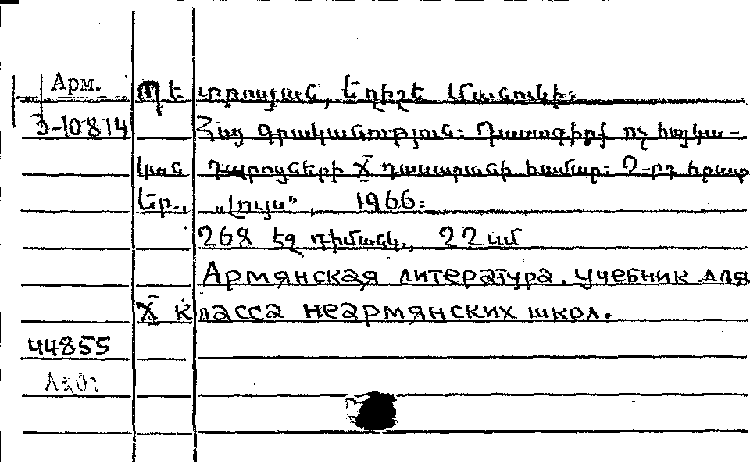 Арм.
Պետրոսյան, Եղիշե Մանուկի:
Э-10814
Հայ գրականություն: Դասագիրք ոչ հայկա-
կան դպրոցների X դասարանի համար: 2-րդ հրատ
Եր., „Լույս“, 1966:
268 էջ դիմանկ., 22 սմ
Армянская литература. Учебник для
X класса неармянских школ.
44855